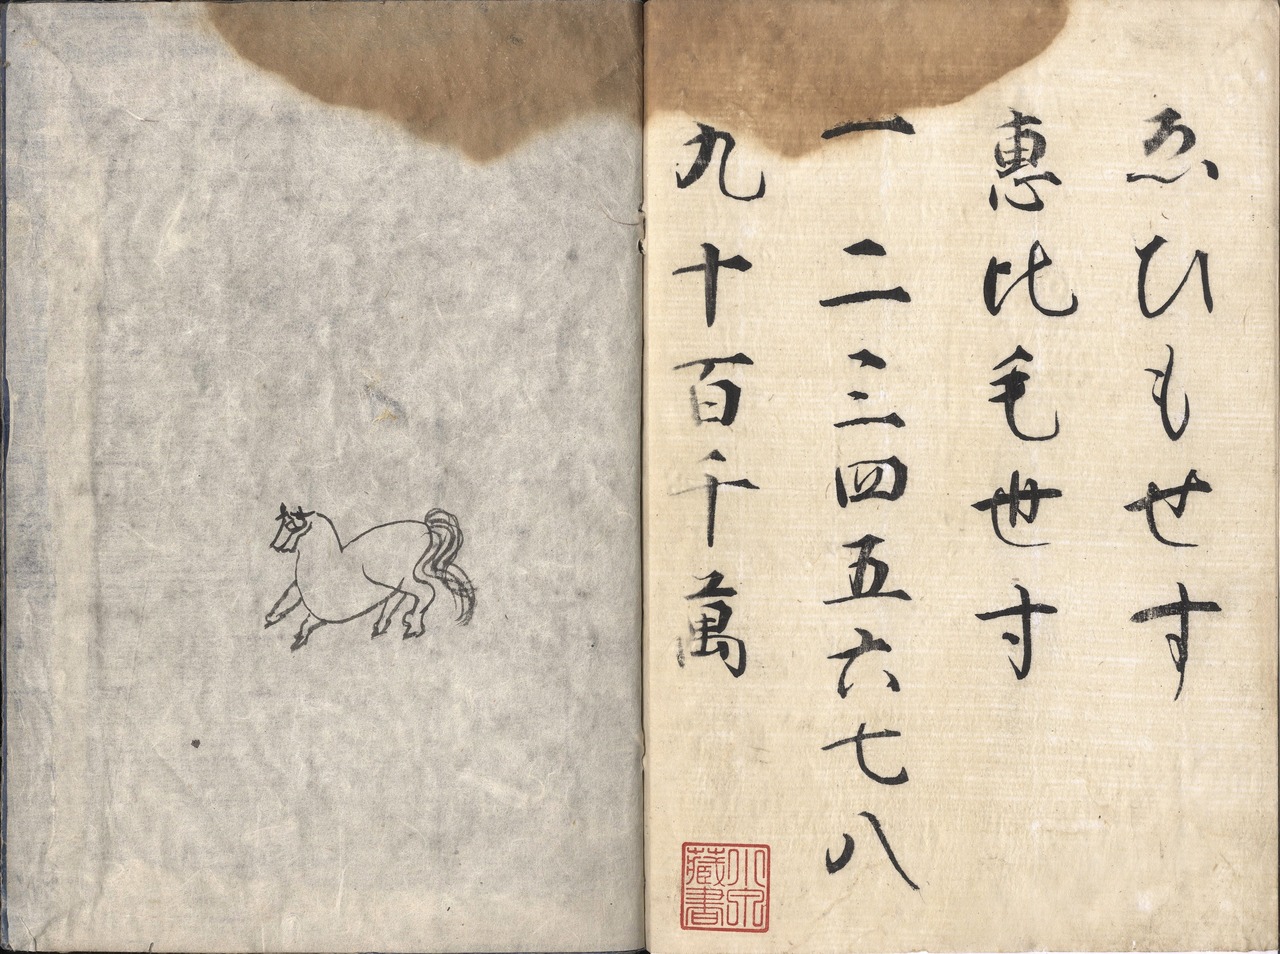 ゑひもせす
惠比毛世寸
一二三四五六七八
九十百千萬
小泉藏書